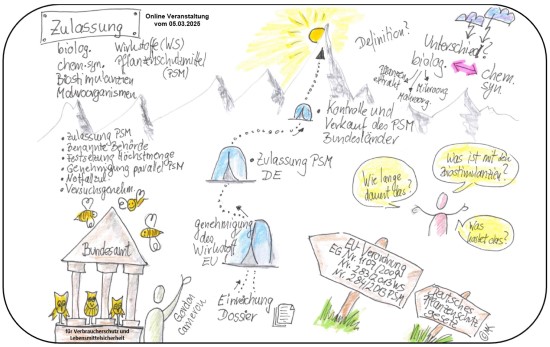 Zulassung
Online Veranstaltung
vom 05.03.2025
biolog.
chem.syn.
Biostimulantien
Makroorganismen
Wirkstoffe (WS)
Pflanzenschutzmittel
(PSM)
Definition?
Unterschied?
biolog.
chem.
syn.
Pflanzen
extrakt
Mikroorg.
Makroorg.
• Zulassung PSM
• Benannte Behörde
• Festsetzung Höchstmenge
• Genehmigung parallel PSM
• Notfallzul.
• Versuchsgenehm.
• Kontrolle und
Verkauf des PSM
Bundesländer
• Zulassung PSM
DE
Genehmigung
des
Wirkstoff
EU
Einreichung
Dossier
Wie lange
dauert das?
Was ist mit den
Biostimulantien?
Was
kostet das?
Bundesamt
für Verbraucherschutz und
Lebensmittelsicherheit
Gordon
Cameron
EU-Verordnung
EG Nr. 1107/2009
Nr. 283/2013 WS
Nr. 284/2013 PSM
Deutsches
Pflanzenschutz
gesetz